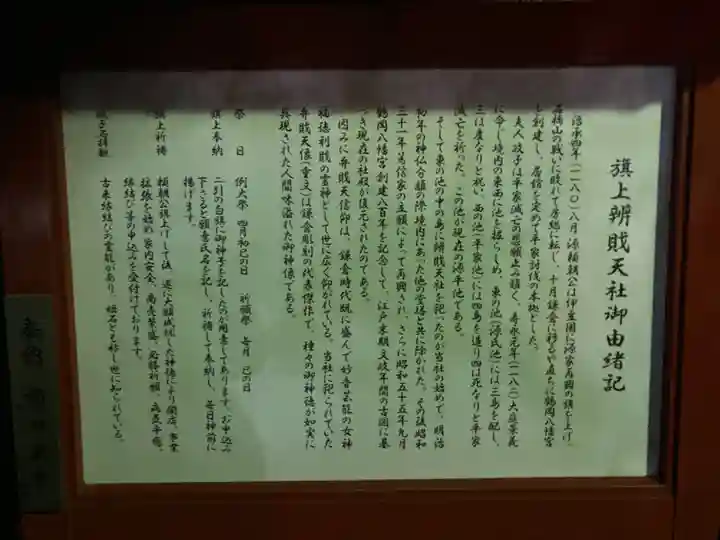 旗上辨財天社御由緒記
治承四年(一一八〇)八月源頼朝公は伊豆国に源家再興の旗を上げ
石橋山の戦いに敗れて房総に転じ、十月鎌倉に移るや直ちに鶴岡八幡宮
を創建し、居館を定めて平家討伐の本拠とした。
夫人政子は平家滅亡の悲願止み難く、寿永元年(一一八二)大庭景義
に命じ境内の東西に池を掘らしめ、東の池(源氏池)には三島を配し、
三は産なりと祝い、西の池(平家池)には四島を造り四は死なりと平家
滅亡を祈った。この池が現在の源平池である。
そして東の池の中の島に辨財天社を祀ったのが当社の始めで、明治
初年の神仏分離の際境内にあった他の堂塔と共に除かれた。その後昭和
三十一年篤信家の立願によって再興され、さらに昭和五十五年九月
鶴岡八幡宮創建八百年を記念して、江戸末期文政年間の古図に基
づき現在の社殿が復元されたのである。
因みに弁財天信仰は、鎌倉時代既に盛んで妙音芸能の女神
福徳利財の霊神として世に広く仰がれている。当社に祀られていた
弁財天像(重文)は鎌倉彫刻の代表傑作で、種々の御神徳が如実に
具現された人間味溢れた御神像である。
祭 日 例大祭 四月初巳の日 祈願祭 毎月 巳の日
旗上奉納 二引の白旗に御神号を記したのが用意してあります。お申込み
下さると願意氏名を記し、祈祷して奉納し、毎日神前に
捧げます。
旗上祈祷 頼朝公旗上げして後、遂に大願成就した神徳により開店、事業
拡張を始め家内安全、商売繁盛、必勝祈願、病気平癒、
縁結び等の申込みを受付けております。
政子石拝観 古来縁結びの霊験があり、姫石とも称し世に知られている。
奉納